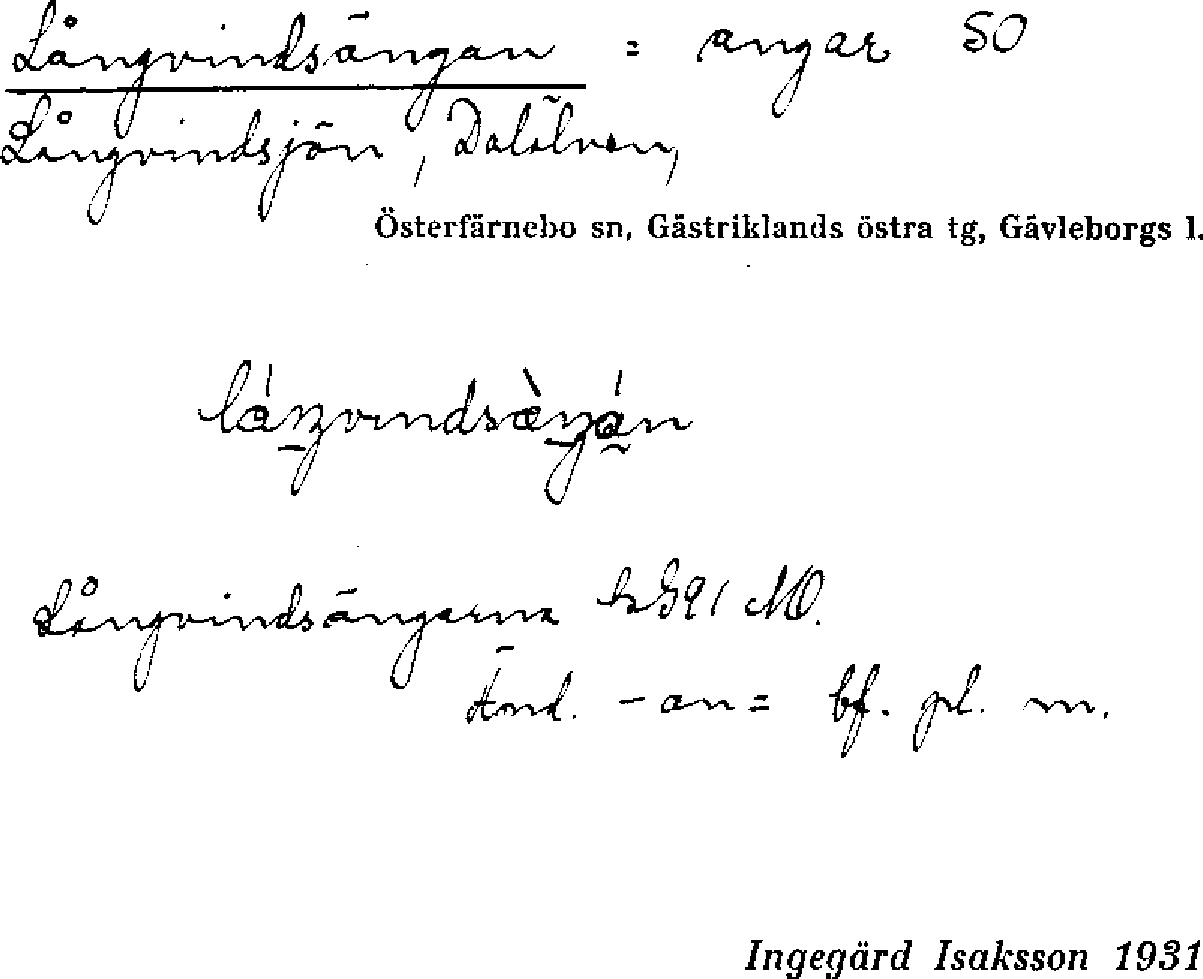 Långvindsängan = ängar SO
Långvindsjön, Dalälven,
Österfärnebo sn, Gästriklands östra tg, Gävleborgs l.
Långvindsängarna
Änd. -an = bf. pl. m.
Ingegärd Isaksson 1931